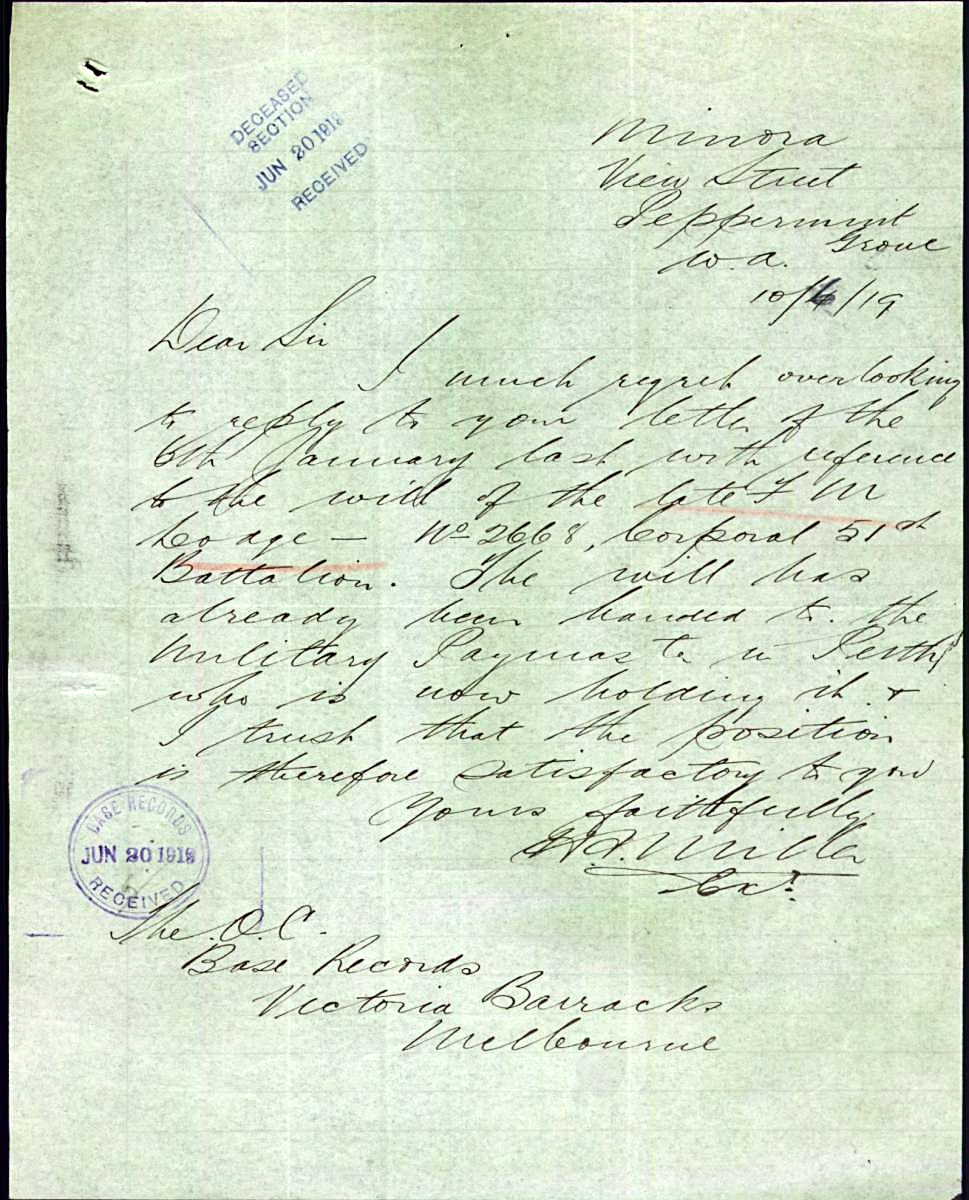 DECEASED
SECTION
JUN 20 1919
RECEIVED
Minora
View Street
Peppermint
Grove
W.A.
10/6/19
Dear Sir
I much regret overlooking
to reply to your letter of the
6th January last with reference
to the will of the late F M
- No 2668, Corporal 51st
Battalion. The will has
already been handed to the
Military Paymaster in Perth
who is now holding it &
I trust that the position
is therefore satisfactory to you
Yours faithfully
Miller
Exr.
BASE RECORDS
JUN 20 1919
RECEIVED
The O.C.
Base Records
Victoria Barracks
Melbourne